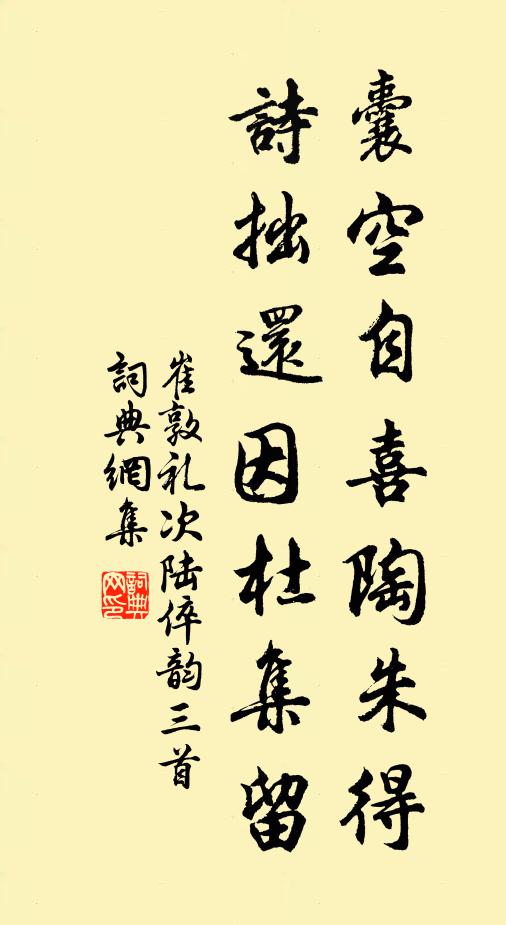 囊空自喜陶朱得
詩拙還因杜集留
崔敦礼次陆倅韵三首
詞典網集
詞典網印